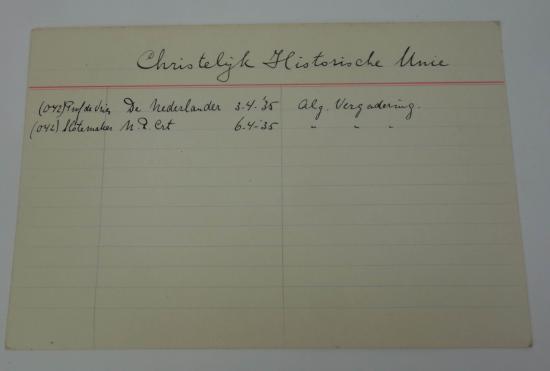 Christelijk Historische Unie
(042) Prof de Vries De Nederlander 3-4-'35 Alg. Vergadering.
(042) Slotemaker N.R. Crt 6-4-'35 " " "